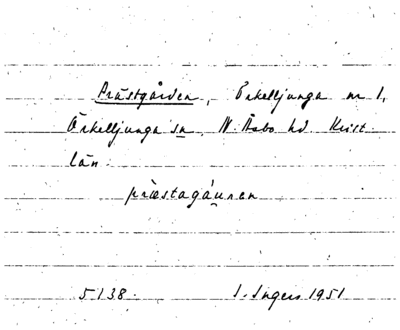 Prästgården, Örkelljunga nr 1,
Örkelljunga sn, N. Åsbo hd. Krist.
län.
præstagáunen
5138. I. Ingers 1951